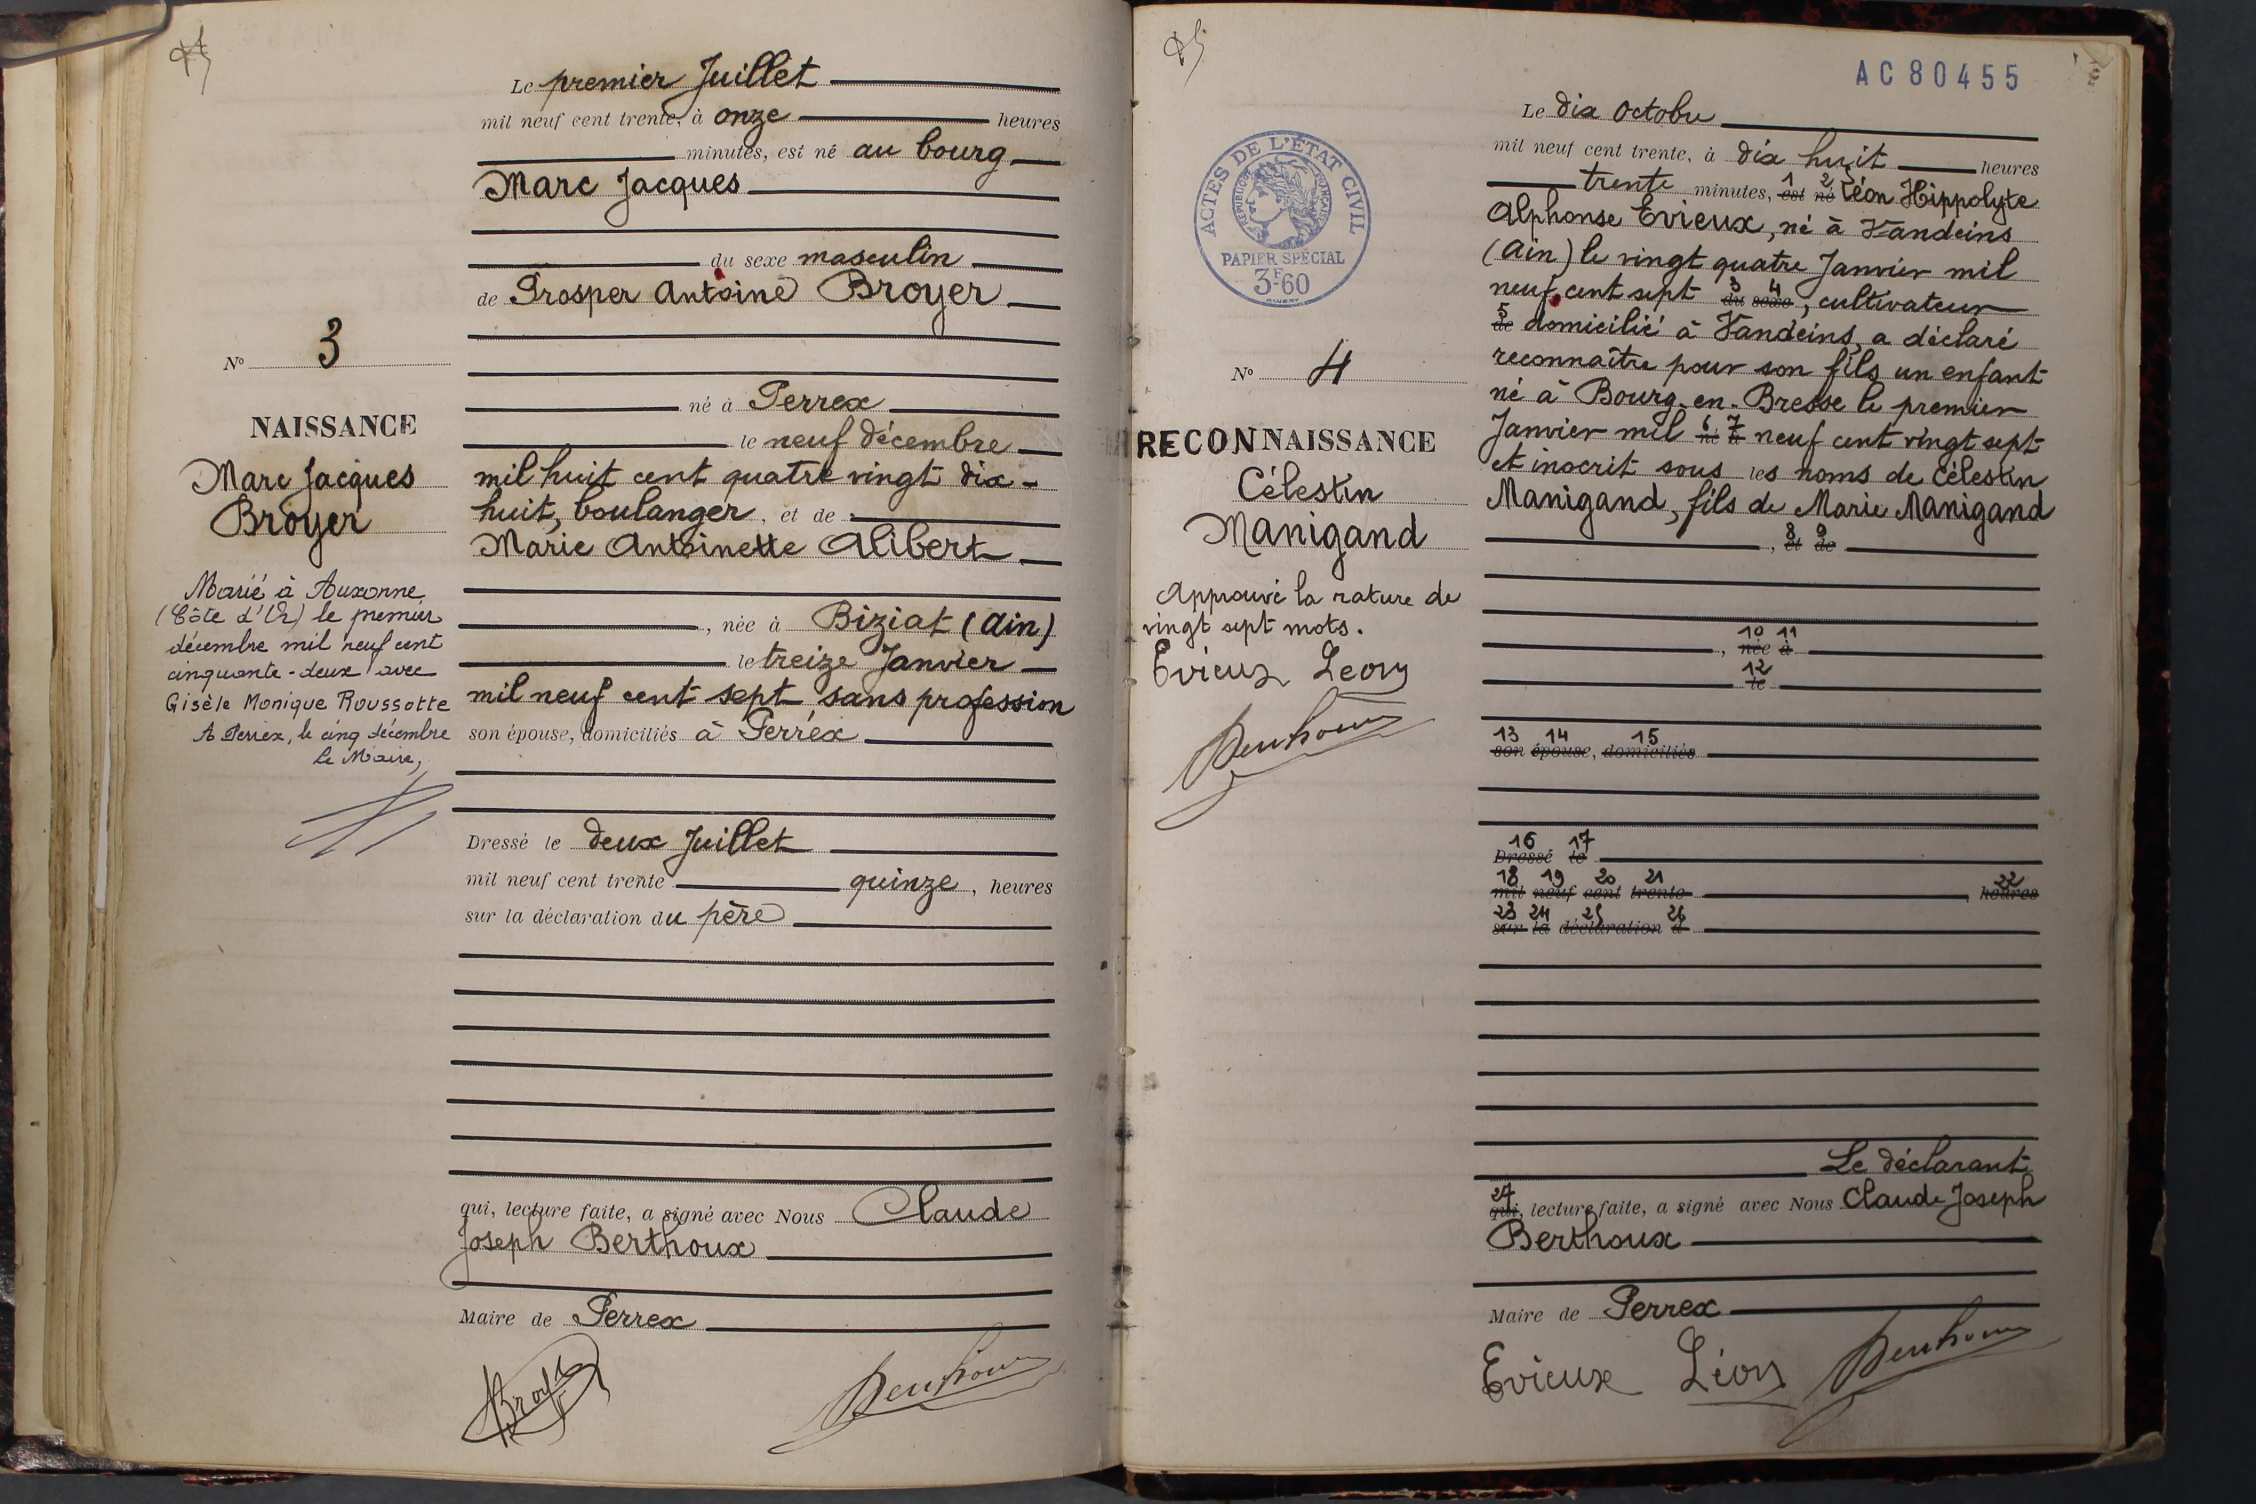 Le premier Juillet
mil neuf cent trente, à onze heures
minutes, est né au bourg
Marc Jacques
du sexe masculin
de Prosper Antoine Broyer
né à Perrex
le neuf décembre
mil huit cent quatre vingt dix-
huit, boulanger, et de
Marie Antoinette Alibert
, née à Biziat (Ain)
le treize Janvier
mil neuf cent sept sans profession
son épouse, domiciliés à Perrex
Dressé le deux Juillet
mil neuf cent trente quinze, heures
sur la déclaration du père
qui, lecture faite, a signé avec Nous Claude
Joseph Berthoux
Maire de Perrex
N° 3
NAISSANCE
Marc Jacques
Broyer
Marié à Auxonne
(Côte d'Or) le premier
décembre mil neuf cent
cinquante-deux avec
Gisèle Monique Roussotte
A Perrex, le cinq décembre
Le Maire,
AC80455
ACTES DE L'ÉTAT CIVIL
RÉPUBLIQUE FRANÇAISE
PAPIER SPÉCIAL
3F60
N° 4
RECONNAISSANCE
Célestin
Manigand
Approuvé la rature de
vingt sept mots.
Evieux Léon
Le dix Octobre
mil neuf cent trente, à dix huit heures
trente minutes, 1 est 2 né Léon Hippolyte
Alphonse Evieux, né à Vandeins
(Ain) le vingt quatre Janvier mil
neuf cent sept 3 du 4 sexe, cultivateur
5 de domicilié à Vandeins, a déclaré
reconnaître pour son fils un enfant
né à Bourg-en-Bresse le premier
Janvier mil 6 né 7 à neuf cent vingt sept
et inscrit sous les noms de Célestin
Manigand, fils de Marie Manigand
, 8 et 9 de
, 10 née 11 à
12 le
13 son 14 épouse, 15 domiciliés
16 Dressé 17 le
18 mil 19 neuf 20 cent 21 trente , 22 heures
23 sur 24 la 25 déclaration 26 d
Le déclarant
27 qui, lecture faite, a signé avec Nous Claude Joseph
Berthoux
Maire de Perrex
Evieux Léon